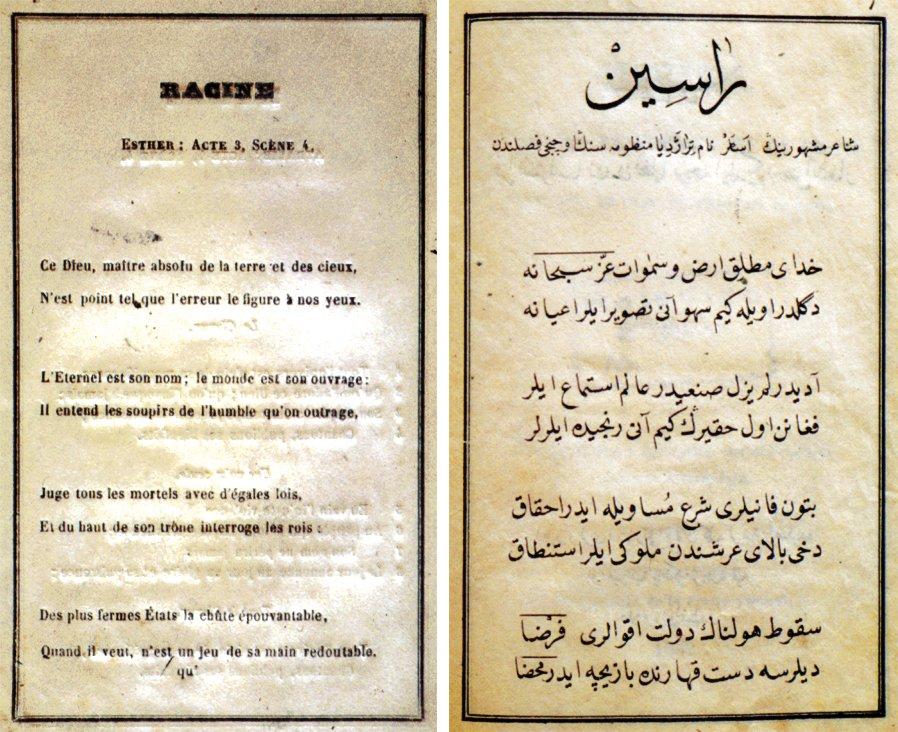 RACINE
ESTHER : ACTE 3, SCÈNE 4.
Ce Dieu, maître absolu de la terre et des cieux,
N'est point tel que l'erreur le figure à nos yeux.
L'Eternel est son nom ; le monde est son ouvrage :
Il entend les soupirs de l'humble qu'on outrage,
Juge tous les mortels avec d'égales lois,
Et du haut de son trône interroge les rois :
Des plus fermes États la chûte épouvantable,
Quand il veut, n'est un jeu de sa main redoutable.
qu'
راسین
شاعر مشهورینك آستر نام تراژدیا منظومه سنك اوچنجی فصلندن
خدای مطلق ارض و سموات عزّ سبحانه
دگلدر اویله کیم سهو آنی تصویر ایلر اعیانه
آدیدر لم یزل صنعیدر عالم استماع ایلر
فغانن اول حقیرك کیم آنی رنجیده ایلرلر
بتون فانیلری شرع مُساویله ایدر احقاق
دخی بالای عرشندن ملوکی ایلر استنطاق
سقوط هولناك دولت اقوالری فرْضا
دیلرسه دست قهارنده بازیچه ایدر محضا